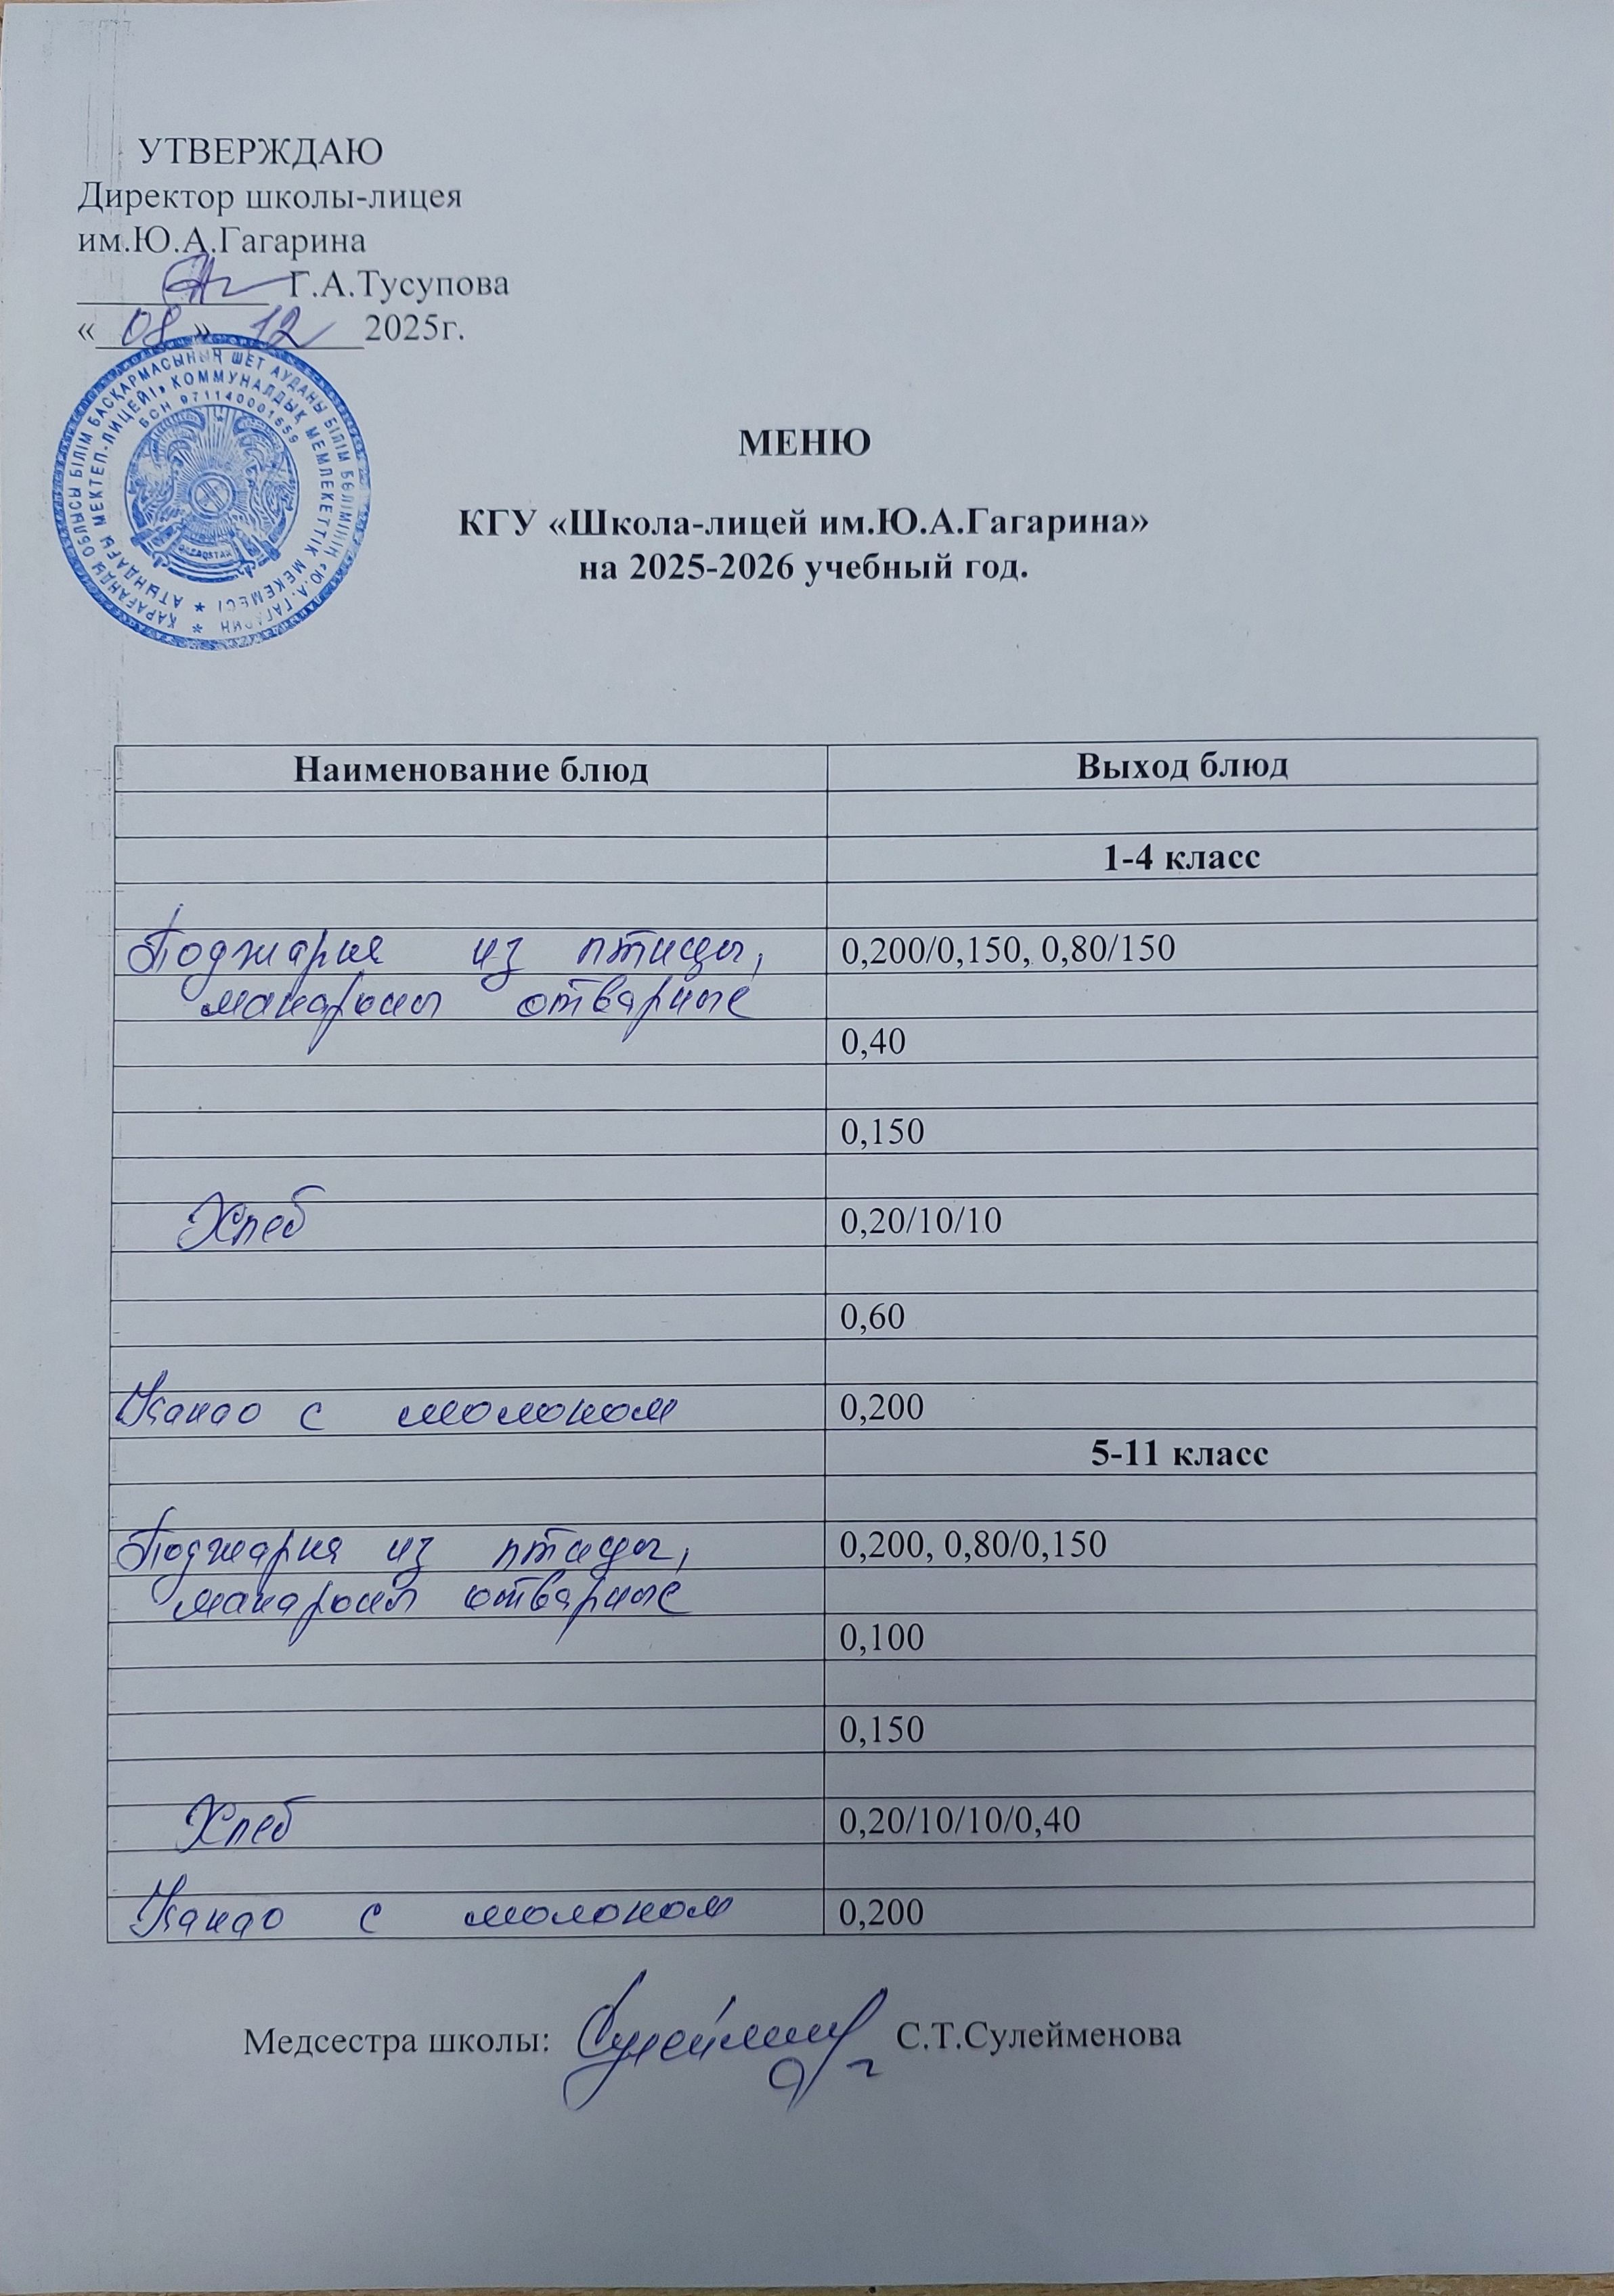 УТВЕРЖДАЮ
Директор школы-лицея
им.Ю.А.Гагарина
Г.А.Тусупова
« 08 » 12 2025г.
ҚАРАҒАНДЫ ОБЛЫСЫ БІЛІМ БАСҚАРМАСЫНЫҢ ШЕТ АУДАНЫ БІЛІМ БӨЛІМІНІҢ «Ю.А.ГАГАРИН
АТЫНДАҒЫ МЕКТЕП-ЛИЦЕЙІ» КОММУНАЛДЫҚ МЕМЛЕКЕТТІК МЕКЕМЕСІ
БСН 971140001659
МЕНЮ
КГУ «Школа-лицей им.Ю.А.Гагарина»
на 2025-2026 учебный год.
Наименование блюд Выход блюд
1-4 класс
Поджарка из птицы, 0,200/0,150, 0,80/150
макароны отварные
0,40
0,150
Хлеб 0,20/10/10
0,60
Какао с молоком 0,200
5-11 класс
Поджарка из птицы, 0,200, 0,80/0,150
макароны отварные
0,100
0,150
Хлеб 0,20/10/10/0,40
Какао с молоком 0,200
Медсестра школы: С.Т.Сулейменова